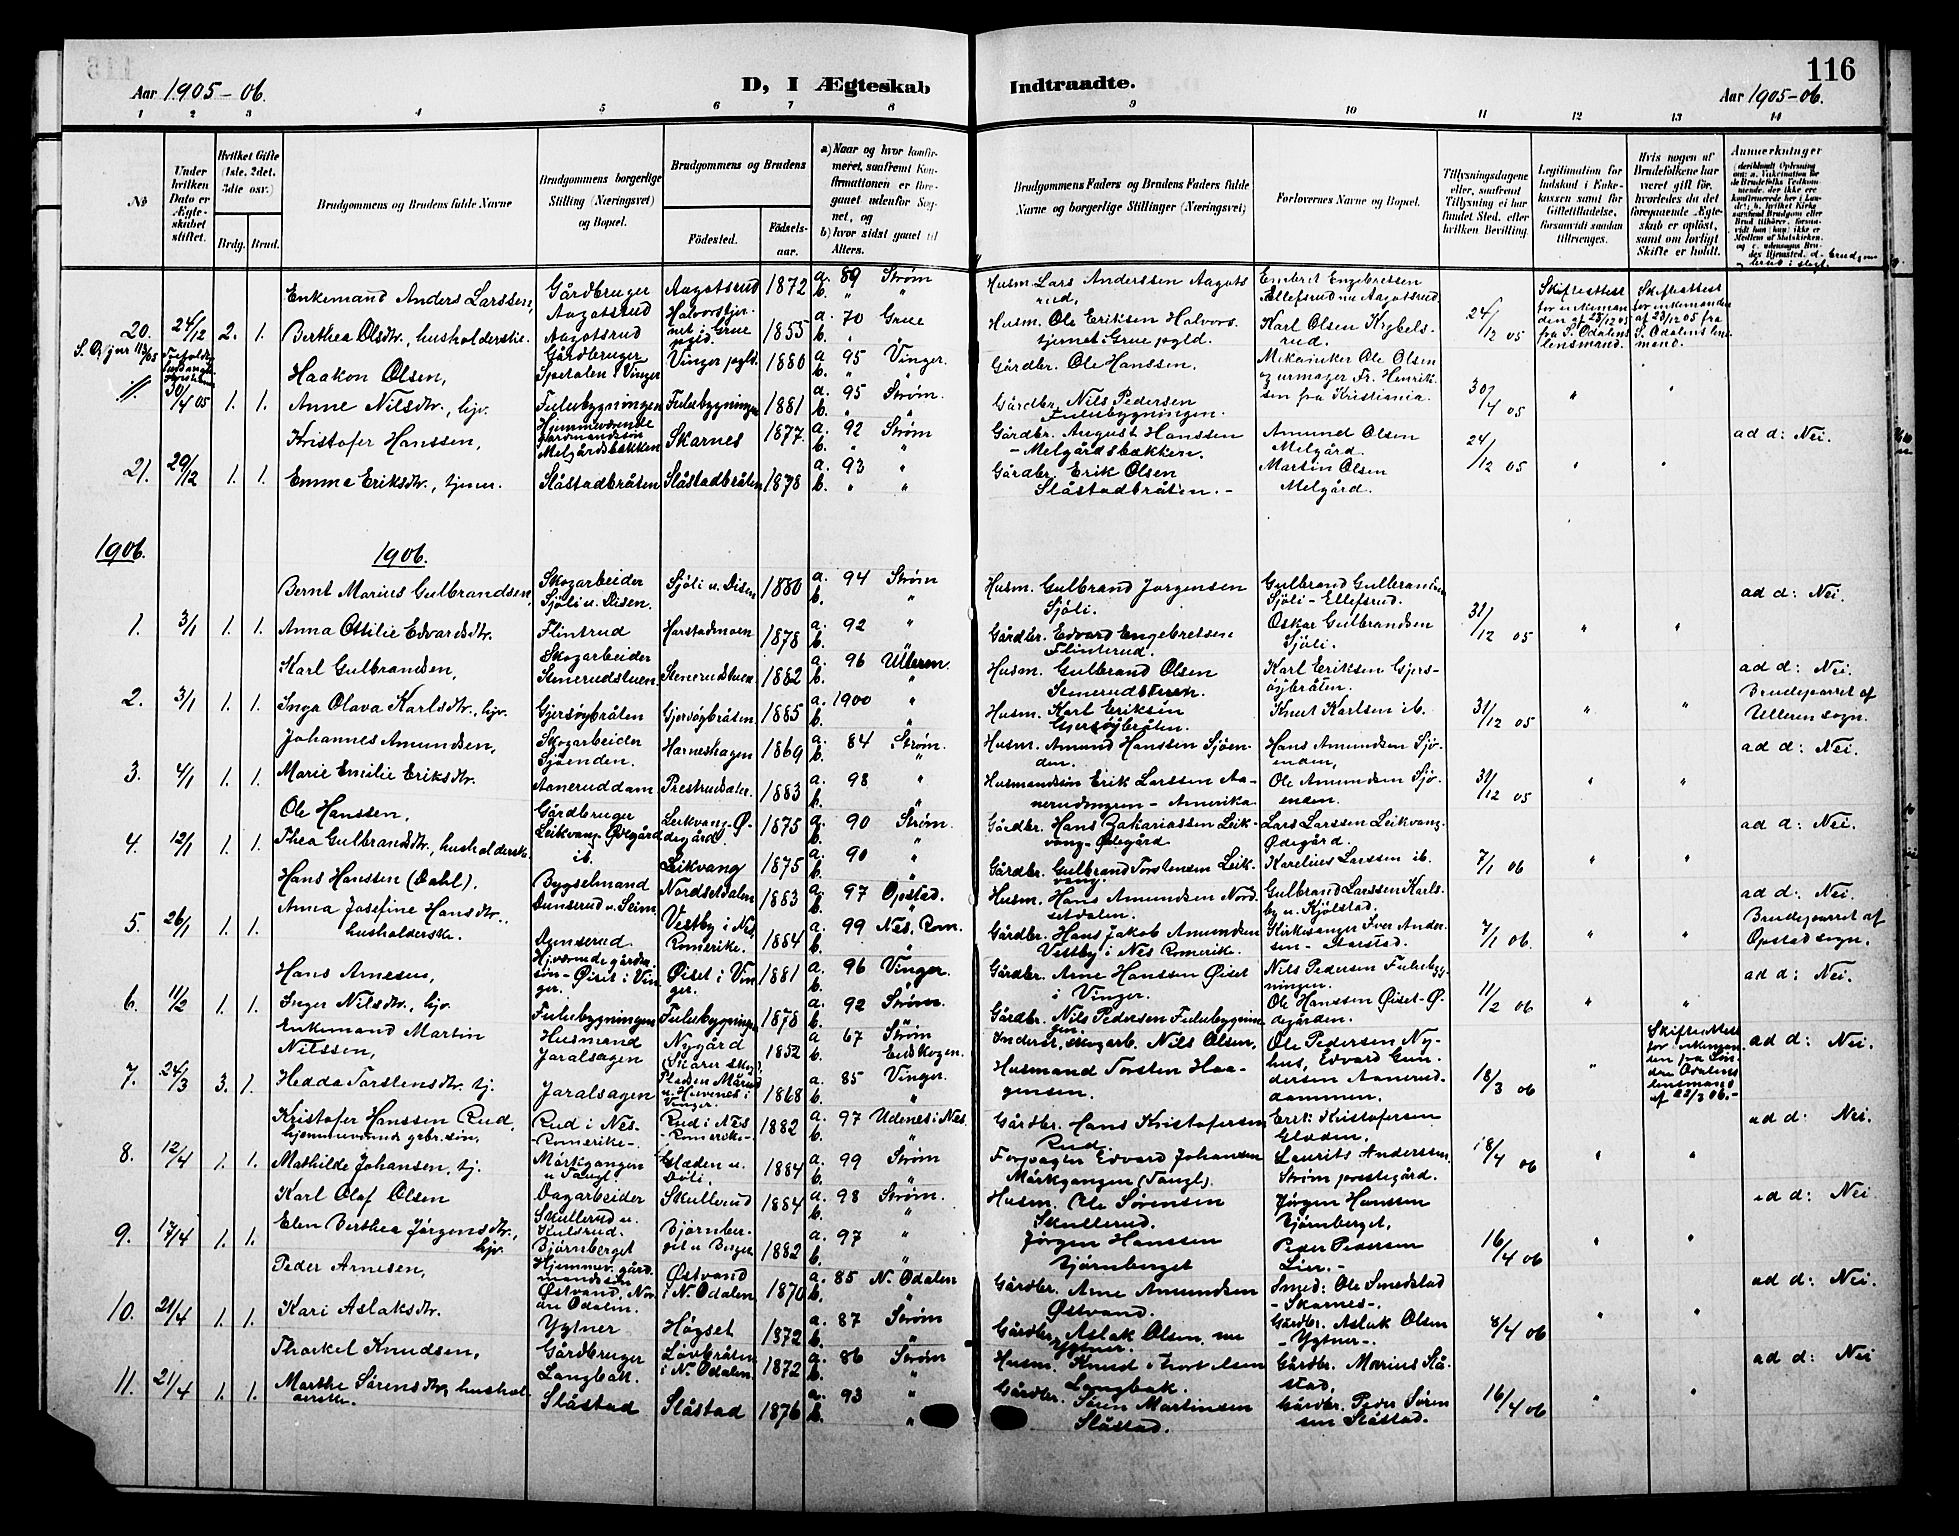 116
Aar 1905-06.
D, I Ægteskab
Indtraadte.
Aar 1905-06.
1 2 3 4 5 6 7 8 9 10 11 12 13 14
No
Under hvilken Dato er Ægteskabet stiftet.
Hvilket Gifte (1ste, 2det, 3die osv.)
Brdg. Brud.
Brudgommens og Brudens fulde Navne
Brudgommens borgerlige Stilling (Næringsvei) og Bopæl.
Brudgommens og Brudens
Fødested.
Fødselsaar.
a) Naar og hvor konfirmeret, saafremt Konfirmationen er foregaaet udenfor Sognet, og
b) hvor sidst gaaet til Alters.
Brudgommens Faders og Brudens Faders fulde Navne og borgerlige Stillinger (Næringsvei)
Forlovernes Navne og Bopæl.
Tillysningsdagene eller, saafremt Tillysning ei har fundet Sted, efter hvilken Bevilling.
Legitimation for Indskud i Enkekassen samt for Giftetilladelse, forsaavidt saadan tiltrænges.
Hvis nogen af Brudefolkene har været gift før, hvorledes da det foregaaende Ægteskab er opløst, samt om lovligt Skifte er holdt.
Anmærkninger
20. 24/12 2. 1.
Enkemand Anders Larssen, Gårdbruger Aagotsrud Aagotsrud 1872 a. 89 Strøm b. " "
Husm. Lars Anderssen Aagotsrud, Embret Engebretsen Ellefsrud
Berthea Olsdtr., husholderske Aagotsrud i Grue pgld. 1855 a. 70 Grue
Husm. Ole Eriksen Halvorstjernet i Grue pgld. Karl Olsen Krybelsrud. 24/12 05
Skifteattest for enkemanden af 23/12 05 fra S. Odalens lensmand.
Skifteattest for enkemanden af 23/12 05 fra S. Odalens lensmand.
30/4 05 1. 1.
Haakon Olsen, Gårdbruger Spetalen i Vinger Vinger pgld. 1880 a. 95 Vinger. b. " "
Gårdbr. Ole Hanssen. Mekaniker Ole Olsen og urmager Fr. Henriksen fra Kristiania. 30/4 05
Anne Nilsdtr., hjv. Fulubygningen Fulubygningen 1881 a. 95 Strøm. b. " "
Gårdbr. Nils Pedersen Fulubygningen.
21. 29/12 1. 1.
Kristofer Hanssen, Hjemmeværende gårdmandssøn Melgårdsbakken Skarnes 1877. a. 92 Strøm b. " "
Gårdbr. August Hanssen - Melgårdsbakken. Amund Olsen Melgård. 24/12 05 ad d: Nei.
Emma Eriksdtr., tjener. Slåstadbråten Slåstadbråten 1878 a. 93 " b. " "
Gårdbr. Erik Olsen Slåstadbråten. - Martin Olsen Melgård.
1906. 1906.
1. 3/1 1. 1.
Bernt Marius Gulbrandsen, Skogarbeider Sjöli u. Disen. Sjöli u. Disen 1880 a. 94 Strøm b. "
Husm. Gulbrand Jorgensen Sjöli. Gulbrand Gulbrandsen Sjöli - Ellefsrud. ad d: Nei.
Anna Ottilie Edvardsdtr. Flintrud Harstadmoen 1878 a. 92 " b. "
Gårdbr. Edvard Engebretsen Flinterud. Oskar Gulbrandsen Sjöli. 31/12 05 " "
2. 3/1 1. 1.
Karl Gulbrandsen, Skogarbeider Stenerudstuen. Stenerudstuen. 1882 a. 96 Ulleren. b. "
Husm. Gulbrand Olsen Stenerudstuen. Karl Eriksen Gjersöybråten. ad d: Nei.
Inga Olava Karlsdtr., hjv. Gjersöybråten Gjersöybråten 1885 a. 1900 " b. "
Husm. Karl Eriksen Gjersöybråten. Knut Karlsen ib. 31/12 05 " " Brudeparret af Ulleren sogn.
3. 4/1 1. 1.
Johannes Amundsen, Skogarbeider Sjöenden. Harneshagen 1869 a. 84 Strøm. b. "
Husm. Amund Hanssen Sjöenden. Hans Amundsen Sjöenden, ad d: Nei.
Marie Emilie Eriksdtr. Aaneruddam Prestrudsæter. 1883 a. 98 " b.
Husmandssøn Erik Larssen Aanerudengen - Amerika Ole Amundsen Sjöenden. 31/12 05 " "
4. 12/1 1. 1.
Ole Hanssen, Gårdbruger Leikvang-Ødegård Leikvang-Ødegård. 1875 a. 90 Strøm. b. "
Gårdbr. Hans Zakariassen Leikvang-Ødegård Lars Larssen Leikvang-Ødegård. ad d: Nei.
Thea Gulbrandsdtr., husholderske ib. Leikvang 1875 a. 90 " b. "
Gårdbr. Gulbrand Torstensen Leikvang. Karelius Larssen ib. 7/1 06 " "
5. 26/1 1. 1.
Hans Hanssen (Dahl). Bygselmand Dunserud u. Seim. Nordsetdalen 1883 a. 97 Opstad. b. "
Husm. Hans Amundsen Nordsetdalen. Gulbrand Larssen Karlsby u. Kjölstad. ad d: Nei.
Anna Josefine Hansdtr., husholderske. Vestby i Nes Romerike. 1884 a. 99 Nes. Rom. b. "
Gårdbr. Hans Jakob Amundsen Vestby i Nes Romerike. Kirkesanger Iver Anderssen - 7/1 06. " " Brudeparret af Opstad sogn.
6. 11/2 1. 1.
Hans Arnesen, Hjv.ærende gårdm.søn - Øiset i Vinger. Øiset i Vinger. 1881 a. 96 Vinger. b. "
Gårdbr. Arne Hanssen Øiset i Vinger. Nils Pedersen Fulubygningen. ad d: Nei.
Inger Nilsdtr., hjv. Fulubygningen Fulubygningen 1878 a. 92 Strøm. b. "
Gårdbr. Nils Pedersen Fulubygningen. Ole Hanssen Øiset-Ødegården. 11/2 06 " "
7. 24/3 3. 1.
Enkemand Martin Nilssen, Husmand Jaralsagen Nygård 1852 a 67 Strøm b. Eidskogen.
Inderst, skogarb. Nils Olsen, Ole Pedersen Nyhus, Edvard Gundersen Aaneruddammen. ad d: Nei.
Hedda Torstensdtr. tj. Jaralsagen Pladsen i Vinger. 1868 a. 85 Vinger. b. "
Husmand Torsten Haagensen. 18/3 06 " Skifteattest for enkemanden fra Søndre Odalens lensmand af 22/3 06.-
8. 12/4 1. 1.
Kristofer Hanssen Rud, hjemmeværende gbr.søn, Rud i Nes - Romerike - Rud i Nes - Romerike - 1882 a. 97 Udenes i Nes. b. "
Gårdbr. Hans Kristofersen Rud. Erik Kristofersen Gladen. ad d: Nei.
Mathilde Johansen, tj. Mårkgangen u. Tangl. Gladen u. Döli. 1884 a. 99 Strøm b. "
Forpagter Edvard Johansen Mårkgangen (Tangl). Laurits Anderssen Strøm prestegård. 18/4 06 " "
9. 17/4 1. 1.
Karl Olaf Olsen Dagarbeider Skullerud u. Kulsrud. Skullerud 1884 a. 98 Strøm. b. "
Husm. Ole Sørensen Skullerud. Jørgen Hanssen Bjørnberget. ad d: Nei
Elen Berthea Jørgensdtr., hjv. Bjørnberget Bjørnberget u. Berger 1882 a. 97 " b. "
Jørgen Hanssen Bjørnberget Peder Pedersen Lier.- 16/4 06 " "
10. 21/4 1. 1.
Peder Arnesen, Hjemmev. gårdmandssøn Østvand, Nordre Odalen. Østvand i N. Odalen 1870 a. 85 N. Odalen b. "
Gårdbr. Arne Amundsen Østvand. Smed: Ole Smedstad - Skarnes -. ad d: Nei.
Kari Aslaksdtr. Ygtner Högset 1872 a. 87 Strøm b. "
Gårdbr. Aslak Olsen nu Ygtner. Gårdbr. Aslak Olsen - Ygtner -. 8/4 06 " "
11. 21/4 1. 1.
Thorkel Knudsen, Gårdbruger Langbak. Løvbråten i N. Odalen 1872 a. 86 Strøm b. "
Husm. Knud Langbak. Gårdbr. Marius Slåstad. ad d: Nei
Marthe Sörensdtr, husholderske. Slåstad Slåstad 1876 a. 93 b. "
Gårdbr. Sören Martinsen Slåstad. Gårdbr. Peder Sörensen Slåstad. 16/4 06 " "